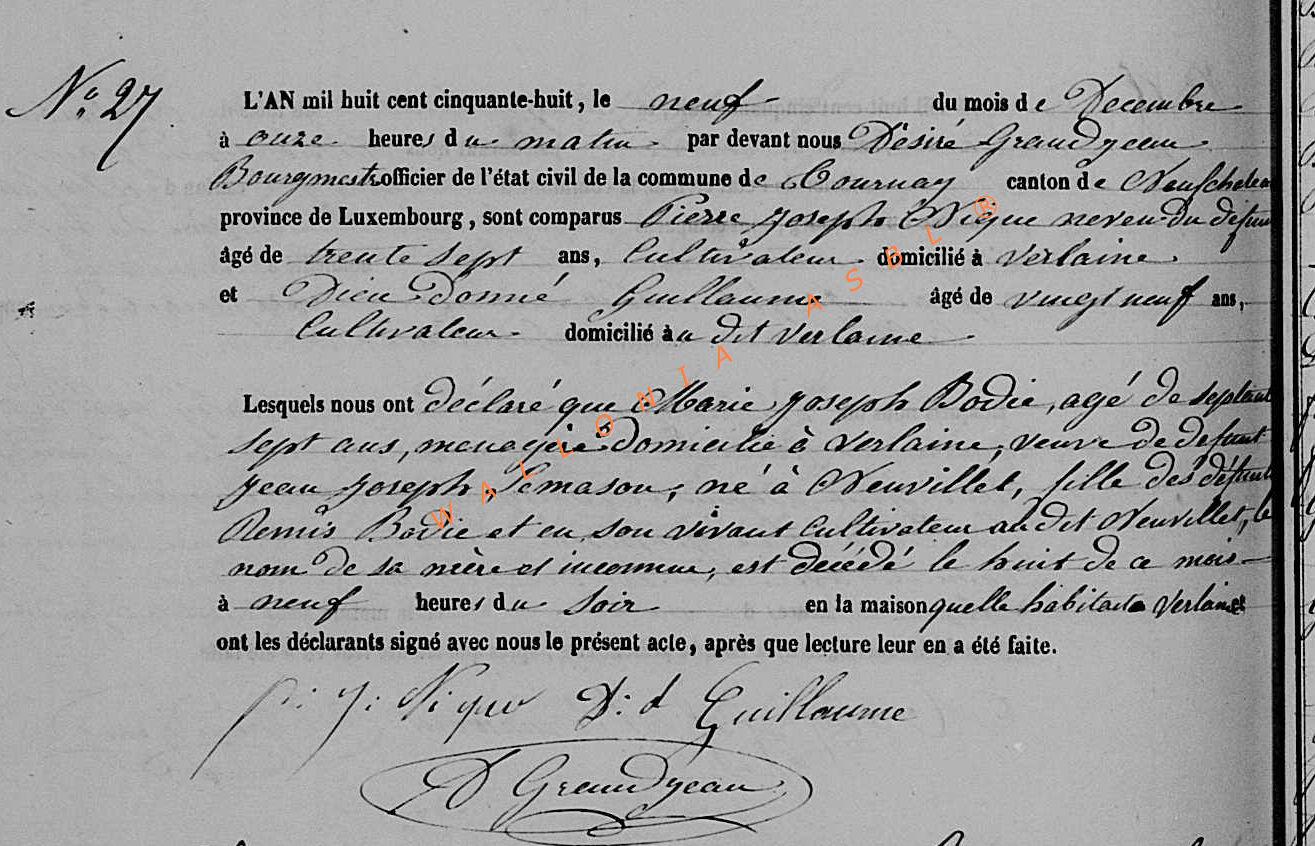 N° 27
L'AN mil huit cent cinquante-huit, le neuf du mois de Decembre
à onze heures du matin par devant nous Désiré Grandjean
Bourgmestre officier de l'état civil de la commune de Tournay canton de Neufchateau
province de Luxembourg, sont comparus Pierre Joseph Nique neveu du défunt
âgé de trente sept ans, Cultivateur domicilié à Verlaine
et Dieu Donné Guillaume âgé de vingt neuf ans,
Cultivateur domicilié au dit Verlaine
Lesquels nous ont déclaré que Marie Joseph Bodie, agé de septante
sept ans, menagère domicilié à Verlaine, veuve de defunt
Jean Joseph Lemason, né à Neuvillet, fille des défunts
Remis Bodie et en son vivant Cultivateur au dit Neuvillet, le
nom de sa mère et inconnue, est décédé le huit de ce mois
à neuf heures du soir en la maison quelle habitait a Verlaine et
ont les déclarants signé avec nous le présent acte, après que lecture leur en a été faite.
p: j: Nique D: d Guillaume
D Grandjean
WALLONIA ASBL ®